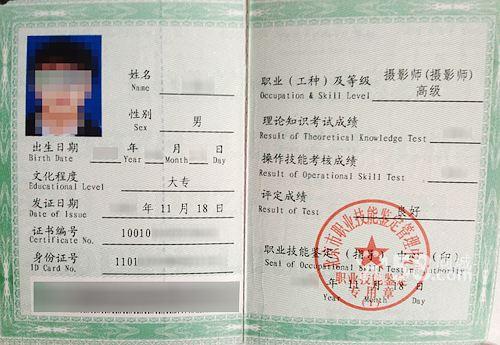 姓名
Name
性别 男
Sex
出生日期 年 月 日
Birth Date Year Month Day
文化程度 大专
Educational Level
发证日期 年 11 月 18 日
Date of Issue Year Month Day
证书编号 10010
Certificate No.
身份证号 1101
ID Card No.
职业（工种）及等级 摄影师（摄影师）
Occupation & Skill Level 高级
理论知识考试成绩
Result of Theoretical Knowledge Test
操作技能考核成绩
Result of Operational Skill Test
评定成绩 良好
Result of Test
职业技能鉴定（指导）中心（印）
Seal of Occupational Skill Testing Authority
年 11 月 18 日
Year Month Day
市职业技能鉴定管理
职业技能鉴定
专用章